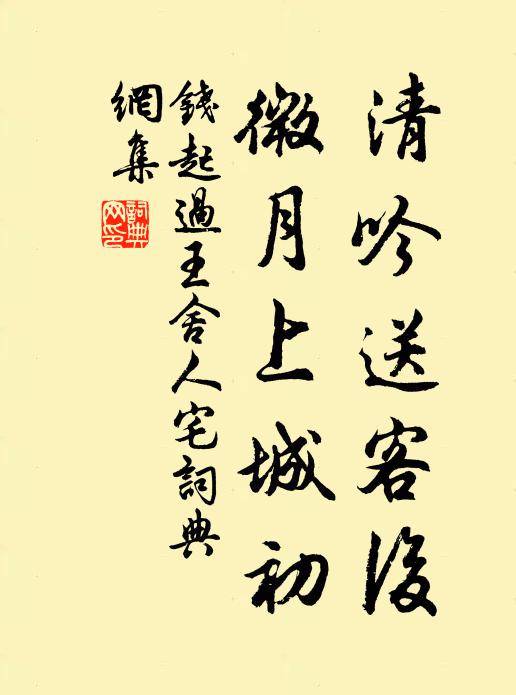 清吟送客後
微月上城初
錢起過王舍人宅詞典
網集
詞典
网印